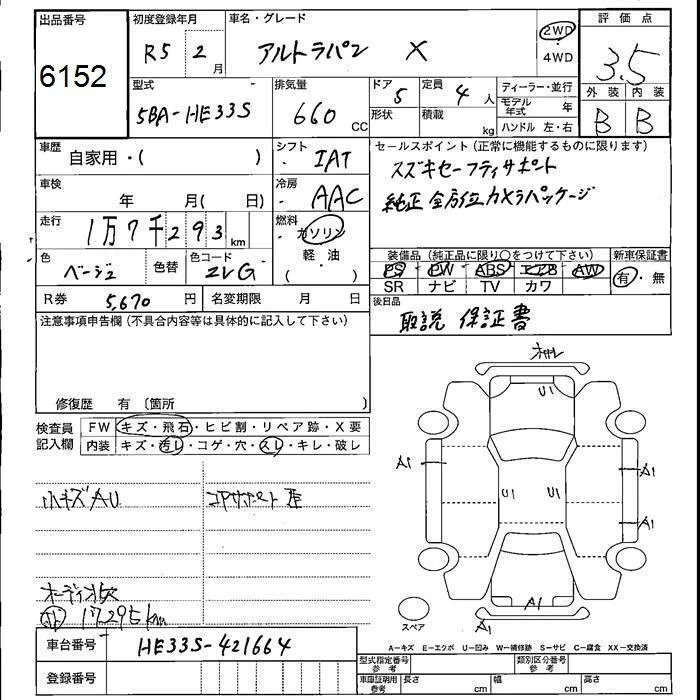 出品番号 初度登録年月 車名・グレード 評価点
6152 R5 2月 アルトラパン X 2WD 4WD 3.5
型式 排気量 ドア 形状 定員 積載 ディーラー・並行 外装 内装
5BA-HE33S 660 CC 5 4人 kg モデル年式 年 B B
ハンドル 左・右
車歴 自家用・( ) シフト IAT セールスポイント(正常に機能するものに限ります)
車検 年 月( 日) 冷房 AAC スズキセーフティサポート
純正 全方位カメラパッケージ
走行 1万7千293km 燃料 ガソリン 軽・油 ( )
色 ベージュ 色替 色コード ZVG 装備品(純正品に限り○をつけて下さい) 新車保証書
PS PW ABS エアB AW 有・無
SR ナビ TV カワ
R券 5,670円 名変期限 月 日 後日品
取説 保証書
注意事項申告欄(不具合内容等は具体的に記入して下さい)
修復歴 有 〔箇所 〕
検査員 FW キズ・飛石・ヒビ割・リペア跡・X要
記入欄 内装 キズ・汚レ・コゲ・穴・スレ・キレ・破レ
U1
A1 U1 U1 A1
A1
小キズAU コアサポート
A1
A1
スペア
17,295km
A=キズ E=エクボ U=凹み W=補修跡 S=サビ C=腐食 XX=交換済
車台番号 HE33S-421664
登録番号 型式指定番号 参考 類別区分番号 参考
車庫証明用 参考 長さ cm 幅 cm 高さ cm